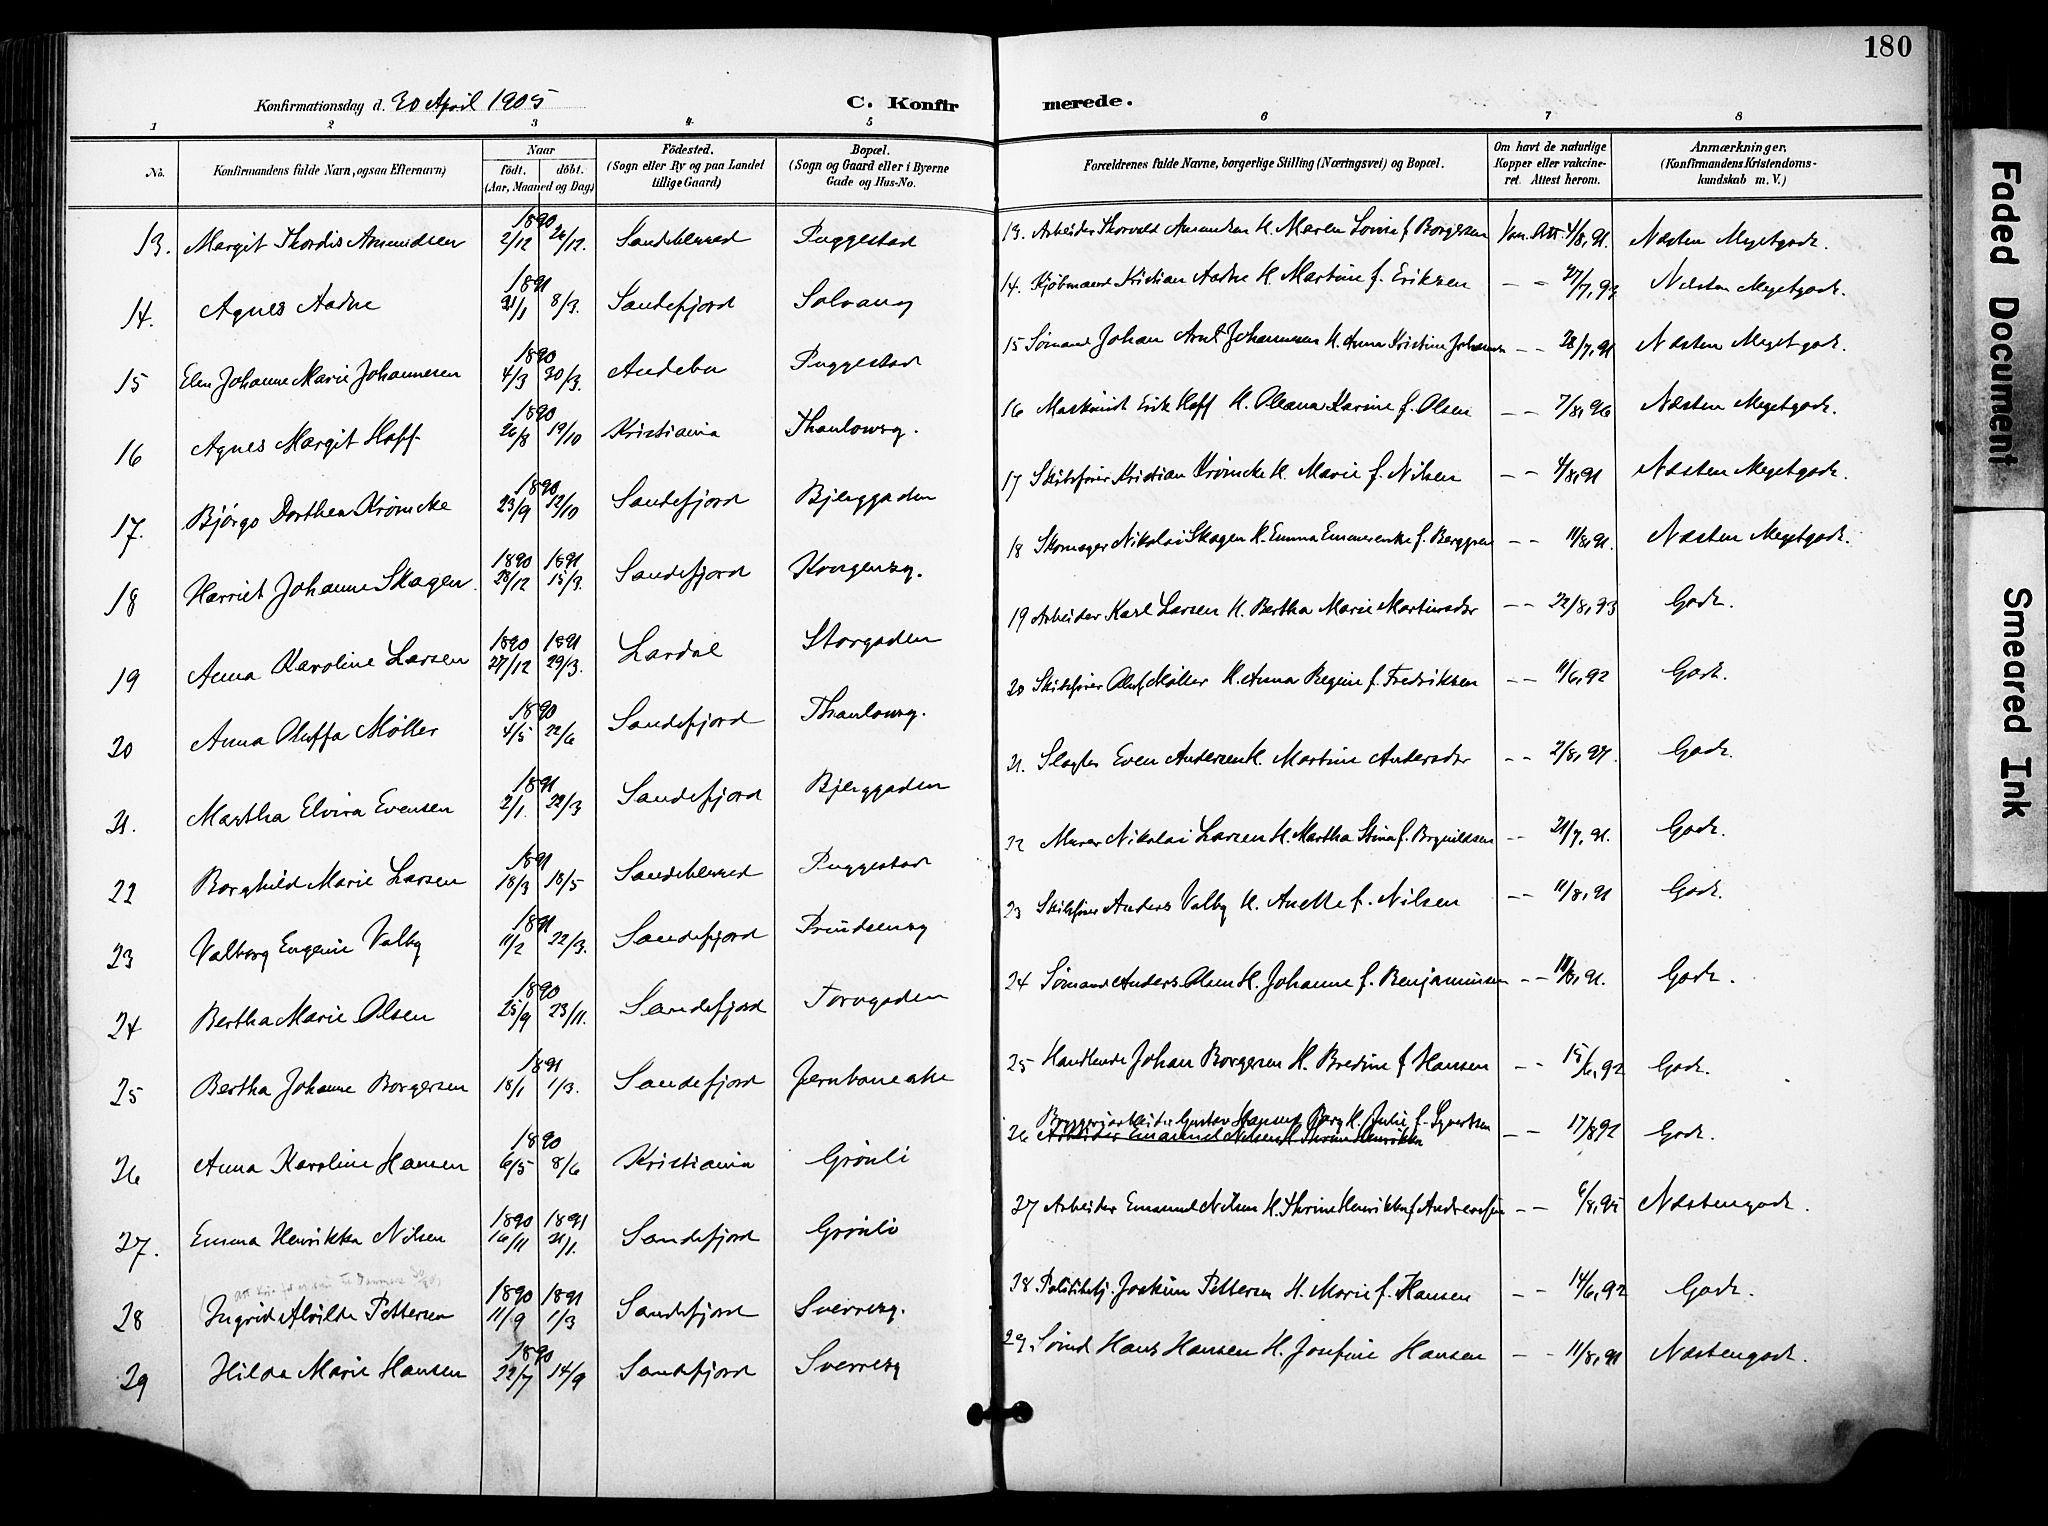 180
Konfirmationsdag d. 30 April 1905
C. Konfirmerede.
1 2 3 4 5 6 7 8
No.
Konfirmandens fulde Navn, ogsaa Efternavn)
Naar
født. døbt.
(Aar, Maaned og Dag)
Födested.
(Sogn eller By og paa Landet
tillige Gaard)
Bopæl.
(Sogn og Gaard eller i Byerne
Gade og Hus-No.
Forældrenes fulde Navne, borgerlige Stilling (Næringsvei) og Bopæl.
Om havt de naturlige
Kopper eller vakcine-
ret. Attest herom.
Anmærkninger.
(Konfirmandens Kristendoms-
kundskab m. V.)
13. Margit Thordis Amundsen 1890 2/12 26/12. Sandeherred Puggestad 13. Arbeider Thorvald Amundsen H. Maren Lovise f. Borgersen Vac. Att. 4/8, 91. Næsten Megetgodt.
14. Agnes Aadne 1891 21/1 8/3. Sandefjord Solvang 14. Kjøbmand Kristian Aadne H. Martine f. Eriksen - - 27/7, 92 Næsten Megetgodt.
15 Elen Johanne Marie Johannesen 1890 4/3 30/3. Andebu Puggestad 15 Sømand Johan Arnt Johannesen H. Anna Kristine Johansen - - 28/7, 91 Næsten Megetgodt.
16 Agnes Margit Hoff 1890 26/8 19/10 Kristiania Thaulowsg. 16 Maskinist Erik Hoff H. Oleana Karine f. Olsen - - 7/8, 96 Næsten Megetgodt.
17. Bjørgo Dorthea Krømcke 1890 23/9 12/10 Sandefjord Bjerggaden 17 Skibsfører Kristian Krømcke H. Marie f. Nilsen - - 4/8, 91 Næsten Megetgodt.
18 Harriet Johanne Skagen 1890 28/12 1891 15/3. Sandefjord Kongensg. 18 Skomager Nikolai Skagen H. Emma Emmerenke f. Berggren - - 11/8, 91. Næsten Megetgodt.
19 Anna Karoline Larsen 1890 27/12 1891 29/3. Lardal Storgaden 19 Arbeider Karl Larsen H. Bertha Marie Martinsdr - - 22/8, 93 Godt.
20 Anna Oluffa Møller 1890 4/5 22/6 Sandefjord Thaulowsg. 20 Skibsfører Oluf Møller H. Anna Regine f. Fredriksen - - 11/6, 92 Godt.
21. Martha Elvira Evensen 1891 2/1. 22/3 Sandefjord Bjerggaden 21. Slagter Even Andersen H. Martine Andersdr - - 2/8, 97. Godt.
22 Borghild Marie Larsen 1891 18/3 18/5 Sandeherred Puggestad 22 Murer Nikolai Larsen H. Martha Stina f. Brynildsen - - 21/7, 91. Godt.
23 Valborg Eugenie Valby 1891 11/2 22/3. Sandefjord Prindsensg 23 Skibsfører Anders Valby H. Anette f. Nilsen - - 11/8, 91 Godt.
24 Bertha Marie Olsen 1890 25/9 23/11. Sandefjord Torvgaden 24 Sømand Anders Olsen H. Johanne f. Benjaminsen - - 11/8, 91. Godt.
25 Bertha Johanne Borgersen 1891 18/1 1/3. Sandefjord Jernbanealle 25 Handlende Johan Borgersen H. Bredine f Hansen - - 15/6, 92 Godt.
26 Anna Karoline Hansen 1890 6/5 8/6 Kristiania Grønli 26 Bryggeriarbeider Gustav Hansen Berg H. Julie f. Syvertsen - - 17/8 92 Godt.
Arbeider Emanuel Nilsen H. Thrine Henrikke
27. Emma Henrikka Nilsen 1890 16/11 1891 21/1. Sandefjord Grønli 27 Arbeider Emanuel Nilsen H. Thrine Henrikke f Andreassen - - 6/8, 95 Næstengodt.
28 Ingrid Alvilde Pettersen 1890 11/9 1891 1/3 Sandefjord Sverresg. 28. Politibtj. Joakim Pettersen H. Marie f. Hansen - - 14/6, 92 Godt.
29 Hilda Marie Hansen 1890 22/7 14/9 Sandefjord Sverresg 29. Sømd Hans Hansen H. Josefine Hansen - - 11/8, 91 Næstengodt.
Faded Document
Smeared Ink